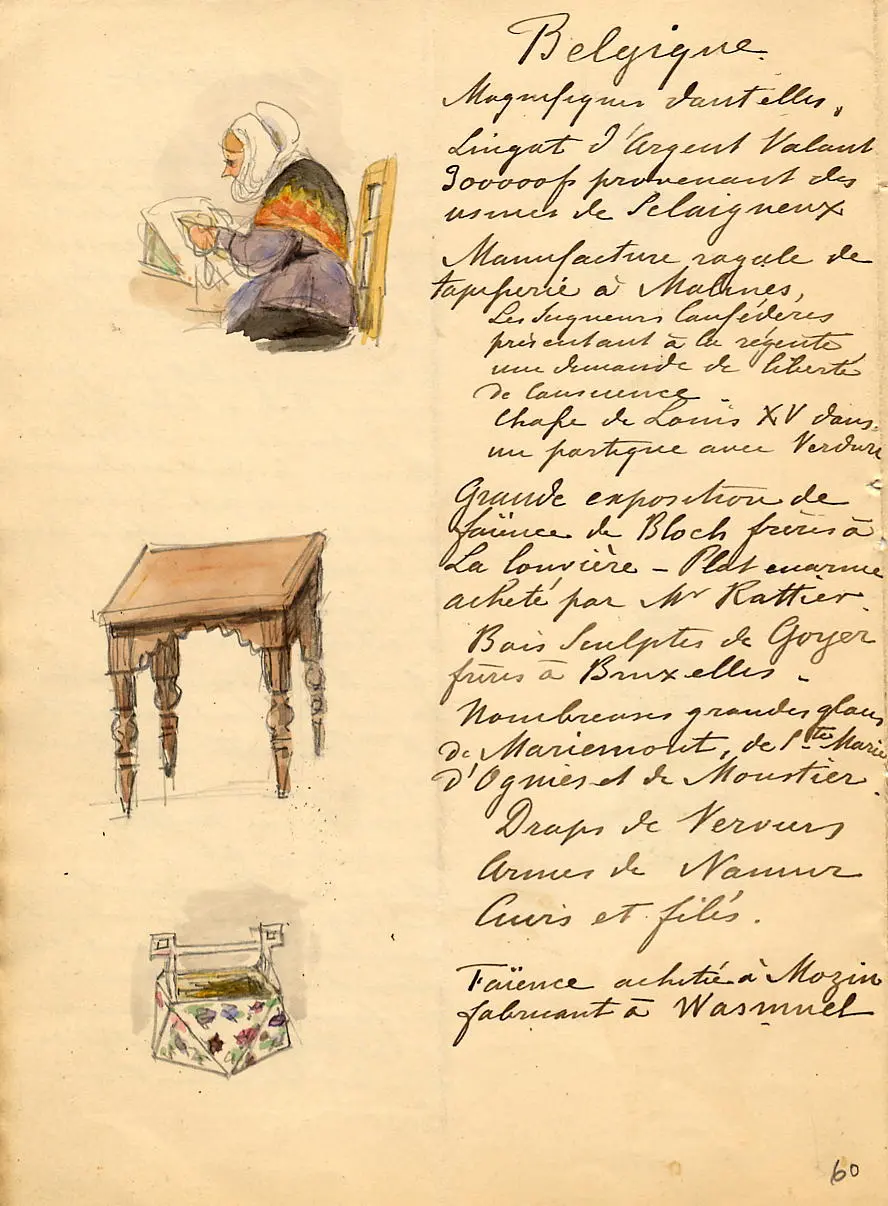 Belgique.
Magnifiques dantelles,
Lingot d'Argent Valant
300000f provenant des
usines de Sclaigneux
Manufacture royale de
tapisserie à Malines,
Les Seigneurs Confédérés
présentant à la régente
une demande de liberté
de Conscience
Chasse de Louis XV dans
un portique avec Verdure
Grande exposition de
faïence de Bloch frères à
La Louvière - Plat enorme
acheté par Mr Rattier.
Bois Sculptés de Goyer
frères à Bruxelles.
Nombreuses grandes glaces
de Mariemont, de Ste Marie
d'Ognies et de Moustier.
Draps de Verviers
Armes de Namur
Cuirs et filés.
Faïence achetée à Mozin
fabricant à Wasmuel
60